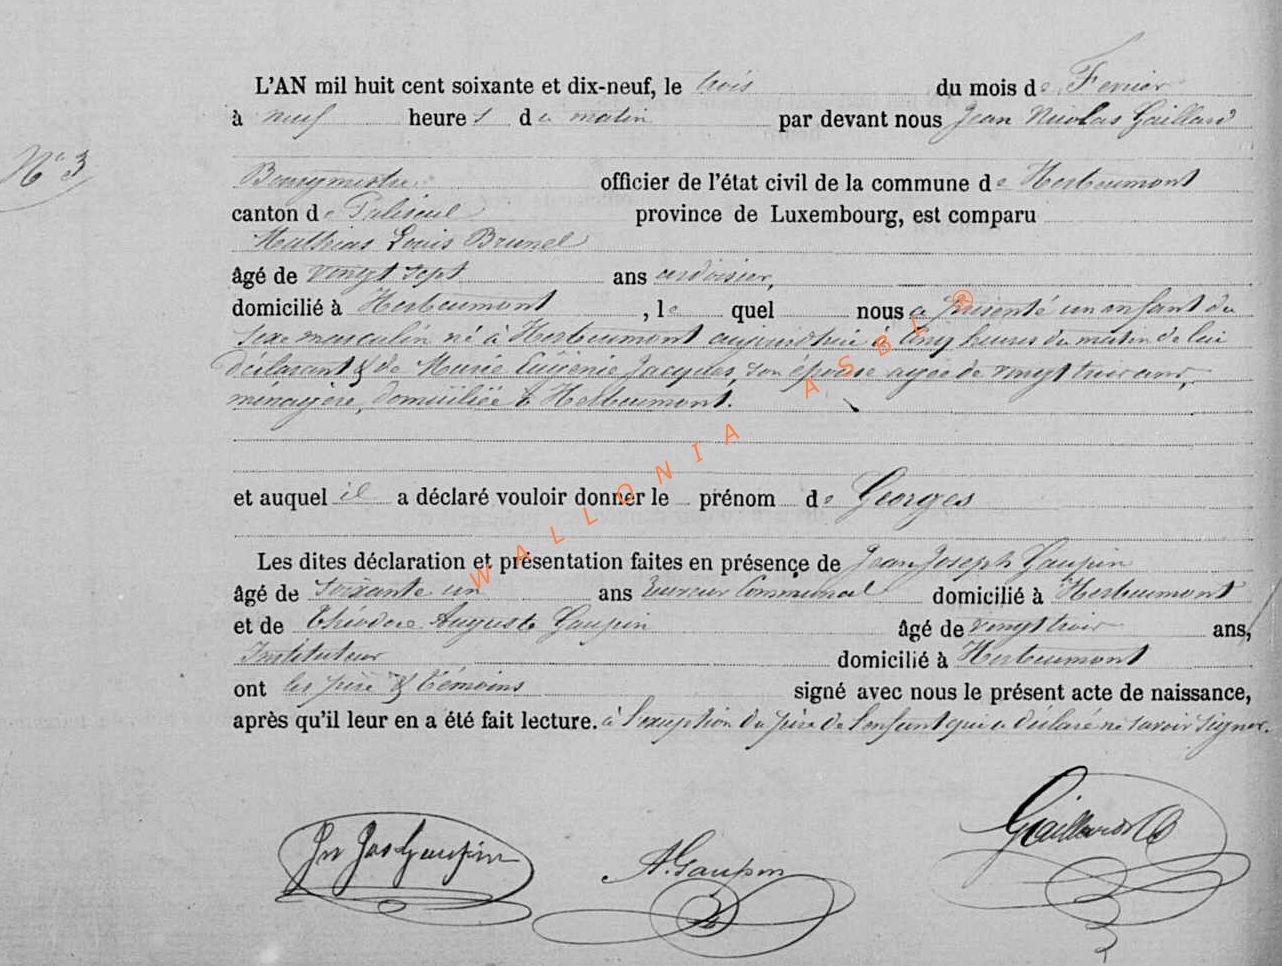 L'AN mil huit cent soixante et dix-neuf, le trois du mois de Fevrier
à neuf heures du matin par devant nous Jean Nicolas Gaillard
N° 3
Bourgmestre officier de l'état civil de la commune de Herbeumont
canton de Paliseul province de Luxembourg, est comparu
Mathias Louis Brunel
âgé de vingt sept ans ardoisier,
domicilié à Herbeumont, lequel nous a présenté un enfant du
sexe masculin né à Herbeumont aujourd'hui à cinq heures du matin de lui
déclarant & de Marie Eugénie Jacques, son épouse agée de vingt trois ans,
ménagère, domiciliée à Herbeumont.
et auquel il a déclaré vouloir donner le prénom de Georges
Les dites déclaration et présentation faites en présence de Jean Joseph Gaupin
âgé de soixante un ans Receveur Communal domicilié à Herbeumont
et de Théodore Auguste Gaupin âgé de vingt trois ans,
Instituteur domicilié à Herbeumont
ont les père & témoins signé avec nous le présent acte de naissance,
après qu'il leur en a été fait lecture. à l'exception du père de l'enfant qui a déclaré ne savoir signer.
Jn Jos Gaupin A. Gaupin Gaillard
WALLONIA ASBL ®